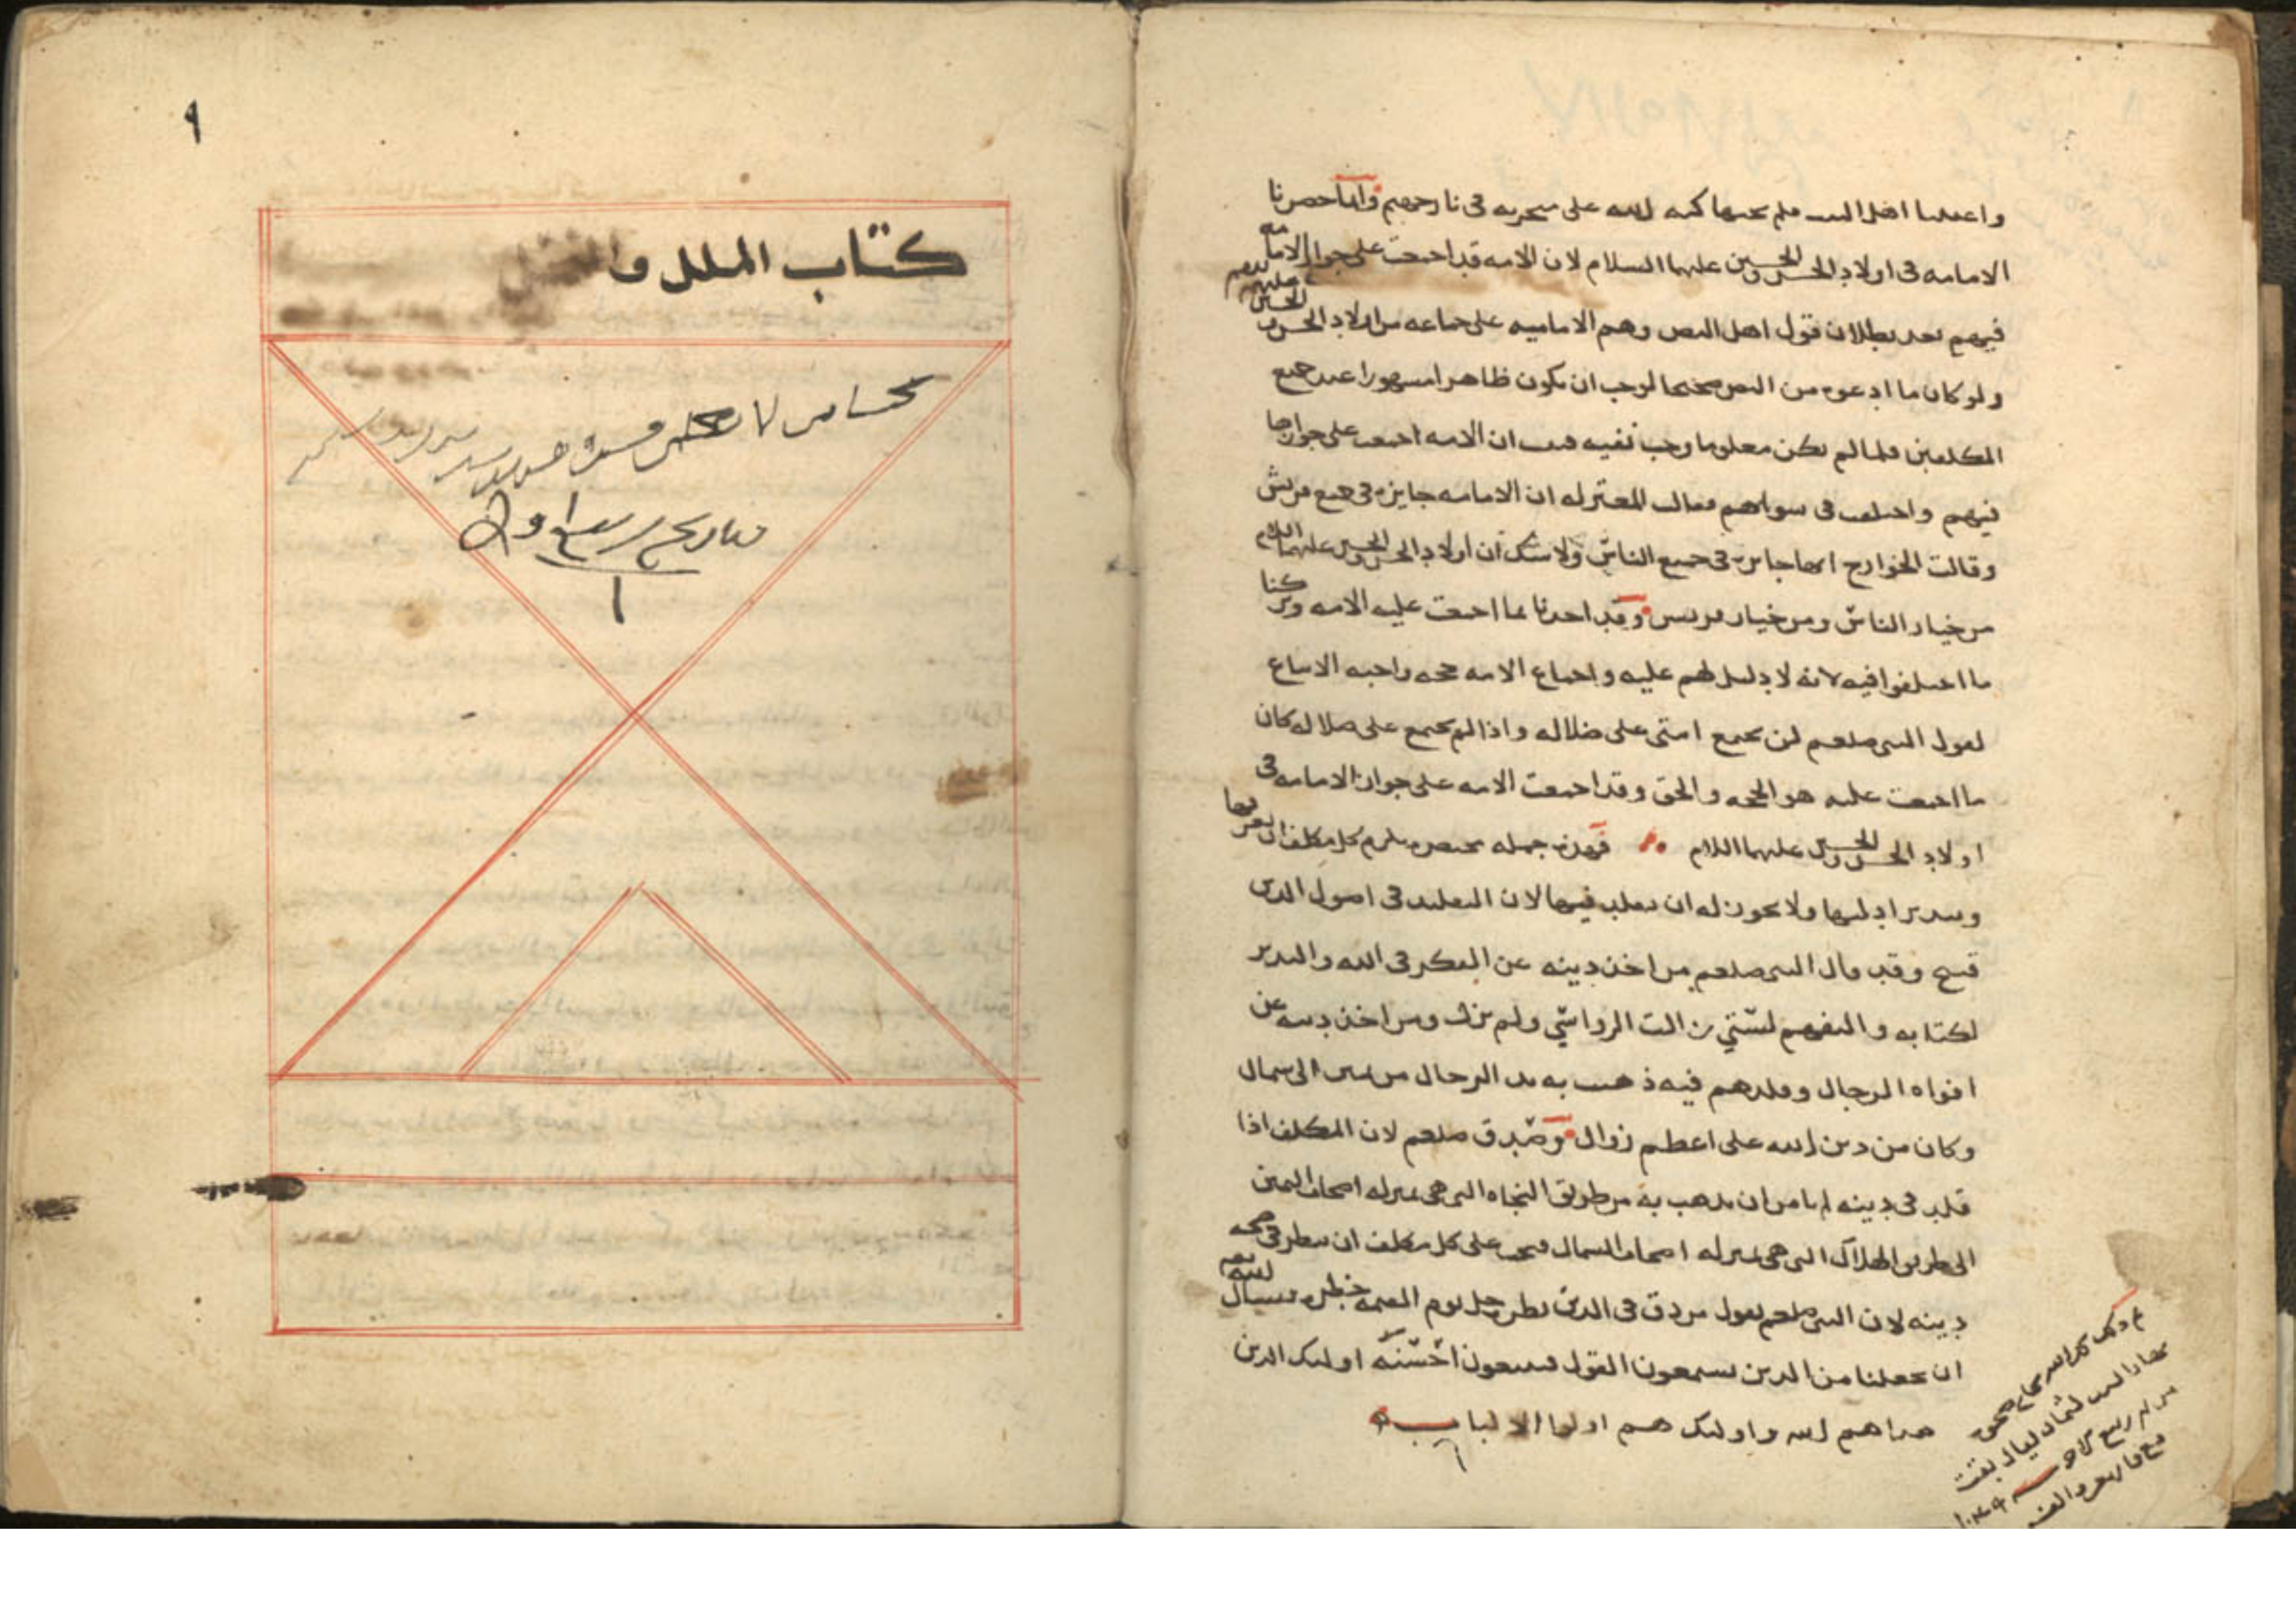 واعدلنا اهل البيت فلم يحبنا كبه الله على منخريه في نار جهنم وانما حصرنا
الامامه في اولاد الحسن والحسين عليهما السلام لان الامه قد اجمعت على جواز الامامه
فيهم بعد بطلان قول اهل النص وهم الاماميه على جماعه من اولاد الحسن والحسين
ولو كان ما ادعوه من النص صحيحا لوجب ان يكون ظاهرا مشهورا عند جميع
المكلفين فلما لم يكن معلوما وجب نفيه فثبت ان الامه اجمعت على جوازها
فيهم واختلفت في سواهم فقالت المعتزله ان الامامه جايزه في جميع قريش
وقالت الخوارج انها جايزه في جميع الناس ولا شك ان اولاد الحسن والحسين عليهما السلام
من خيار الناس ومن خيار قريش وقد اخذنا بما اجمعت عليه الامه وتركنا
ما اختلفوا فيه لانه لا دليل لهم عليه واجماع الامه حجه واجبه الاتباع
لقول النبي صلعم لن تجتمع امتي على ضلاله واذا لم تجتمع على ضلاله كان
ما اجمعت عليه هو الحجه والحق وقد اجمعت الامه على جواز الامامه في
اولاد الحسن والحسين عليهما السلام فهذه جمله مختصره يلزم كل مكلف ان يعرفها
ويتدبر ادلتها ولا يجوز له ان يقلد فيها لان التقليد في اصول الدين
قبيح وقد قال النبي صلعم من اخذ دينه عن التفكر في الله والتدبر
لكتابه والتفهم لسنتي زالت الرواسي ولم يزل ومن اخذ دينه عن
افواه الرجال وقلدهم فيه ذهبت به الرجال من يمين الى شمال
وكان من دين الله على اعظم زوال وصدق صلعم لان المكلف اذا
قلد في دينه لم يامن ان يذهب به من طريق النجاه التي هي منزله اصحاب اليمين
الى طريق الهلاك التي هي منزله اصحاب الشمال فيجب على كل مكلف ان ينظر في صحه
دينه لان النبي صلعم يقول من دق في الدين نظره جل يوم القيمه خطره نسال الله
ان يجعلنا من الذين يستمعون القول فيتبعون احسنه اولئك الذين
هداهم الله واولئك هم اولوا الالباب
نهار السبت لثمان ليال بقت
٩
كتاب الملل والنحل
بتاريخ ربيع اول